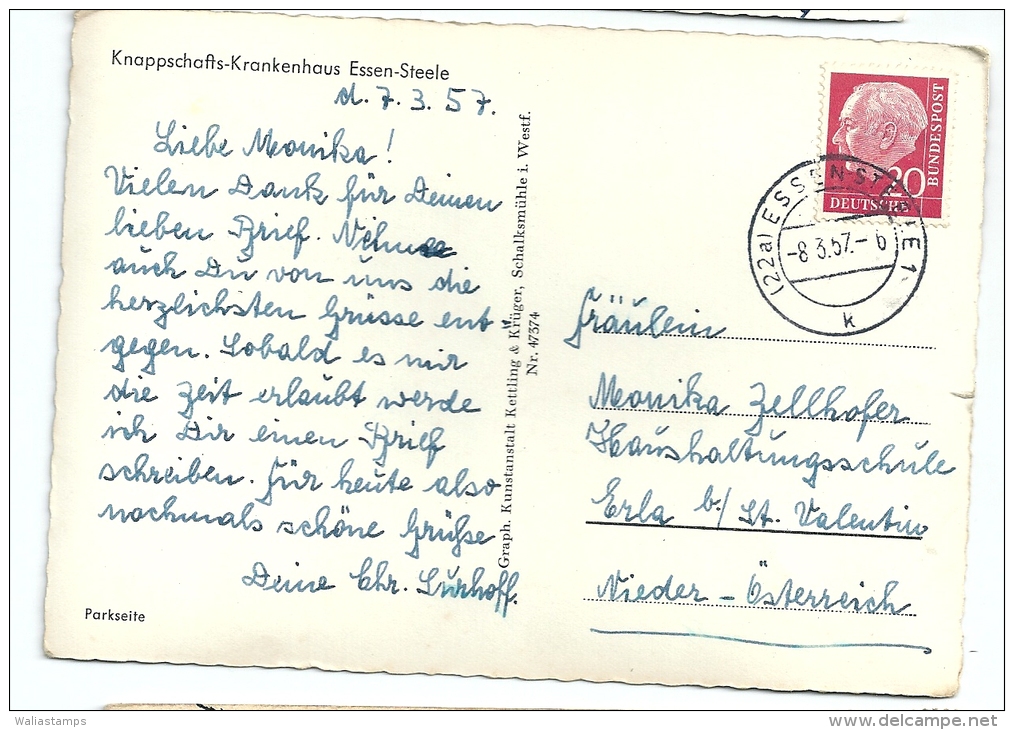 Knappschafts-Krankenhaus Essen-Steele
d. 7. 3. 57.
Liebe Monika!
Vielen Dank für Deinen
lieben Brief. Nehme
auch Du von uns die
herzlichsten Grüsse ent
gegen. Sobald es mir
die Zeit erlaubt werde
ich Dir einen Brief
schreiben. Für heute also
nochmals schöne Grüße
Deine Chr. Surhoff.
Parkseite
Graph. Kunstanstalt Kettling & Krüger, Schalksmühle i. Westf.
Nr. 47374
20
DEUTSCHE
BUNDESPOST
(22a) ESSEN-STEELE 1
-8.3.57.- 6
k
Fräulein
Monika Zellhofer
Haushaltungsschule
Erla b./ St. Valentin
Nieder-Österreich
Waliastamps
delcampe.net